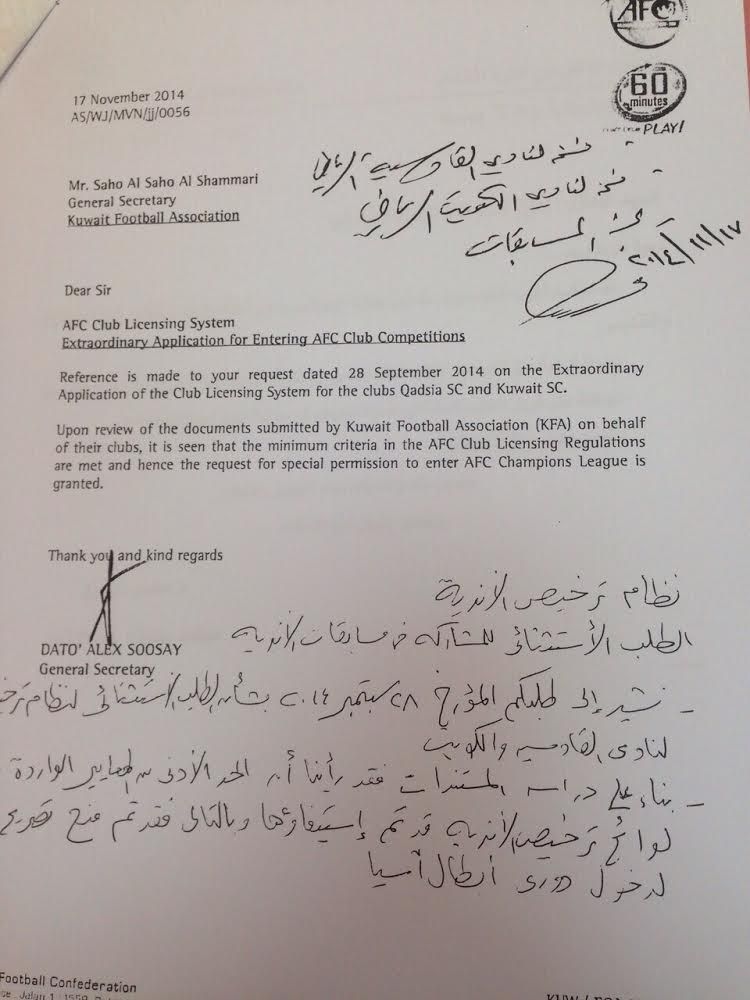 AFC
60
minutes
PLAY!
17 November 2014
AS/WJ/MVN/jj/0056
نسخة لنادي القادسية الرياضي
نسخة لنادي الكويت الرياضي
لجنة المسابقات
٢٠١٤/١١/١٧
Mr. Saho Al Saho Al Shammari
General Secretary
Kuwait Football Association
Dear Sir
AFC Club Licensing System
Extraordinary Application for Entering AFC Club Competitions
Reference is made to your request dated 28 September 2014 on the Extraordinary
Application of the Club Licensing System for the clubs Qadsia SC and Kuwait SC.
Upon review of the documents submitted by Kuwait Football Association (KFA) on behalf
of their clubs, it is seen that the minimum criteria in the AFC Club Licensing Regulations
are met and hence the request for special permission to enter AFC Champions League is
granted.
Thank you and kind regards
DATO' ALEX SOOSAY
General Secretary
نظام ترخيص الأندية
الطلب الأستثنائى للمشاركة فى مسابقات الأندية
- نشير إلى طلبكم المؤرخ ٢٨ سبتمبر ٢٠١٤ بشأن الطلب الأستثنائى لنظام
لنادى القادسيه والكويت
- بناء على دراسه المستندات فقد رأينا أن الحد الأدنى من المعايير الواردة
لوائح ترخيص الأنديه قد تم إستيفاؤها وبالتالى فقد تم منح تصريح
لدخول دورى أبطال آسيا
Football Confederation